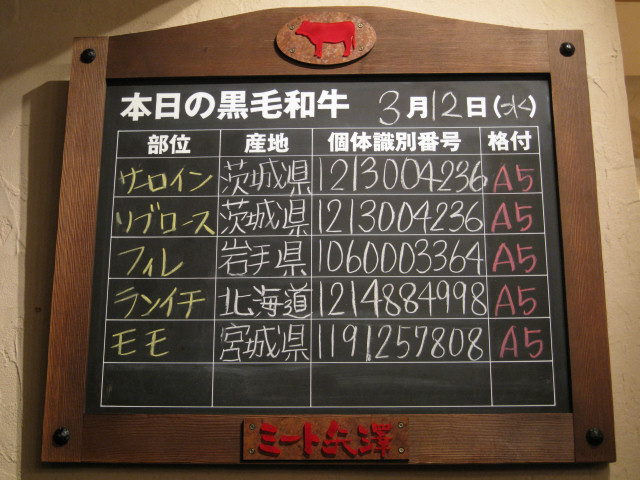 本日の黒毛和牛 3月12日(水)
部位 産地 個体識別番号 格付
サーロイン 茨城県 1213004236 A5
リブロース 茨城県 1213004236 A5
フィレ 岩手県 1060003364 A5
ランイチ 北海道 1214884998 A5
モモ 宮城県 1191257808 A5
ミート矢澤